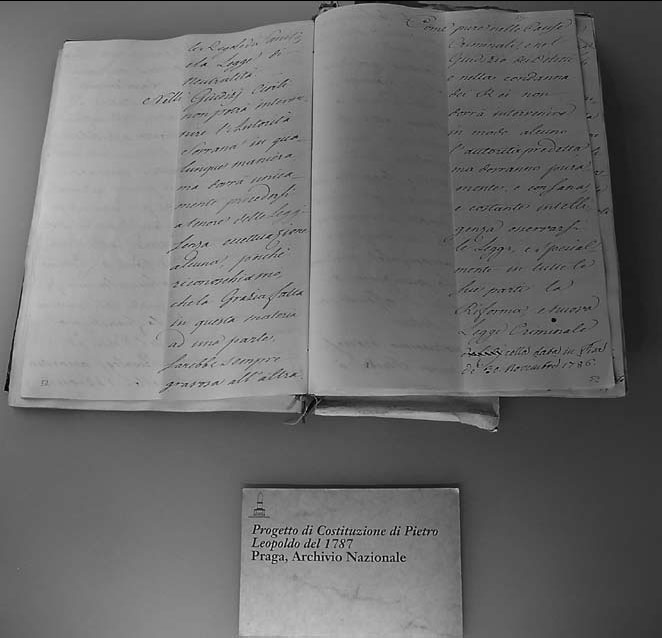 le Regole da
e la Legge di
Neutralità
Nelli Giudizj Civili
non potrà interve=
nire l'Autorità
Sovrana in qua=
lunque maniera,
ma dovrà unica=
mente procedersi
a tenore delle Leggi
senza eccettuazione
alcuna, poichè
riconoschiamo,
che la Grazia fatta
in questa materia
ad una parte,
sarebbe sempre
gravosa all'altra.
52
Come pure nelle Cause
Criminali, e nel
Giudizio dei Delitti
e nella condanna
dei Rei non
dovrà intervenire
in modo alcuno
l'autorità predetta,
ma dovranno pura=
mente, e con sana
e costante intelli=
genza osservarsi
le Leggi, e special=
mente in tutte le
sue parte la
Riforma, e nuova
Legge Criminale
colla data in
de' 30. Novembre 1786.
Progetto di Costituzione di Pietro
Leopoldo del 1787
Praga, Archivio Nazionale